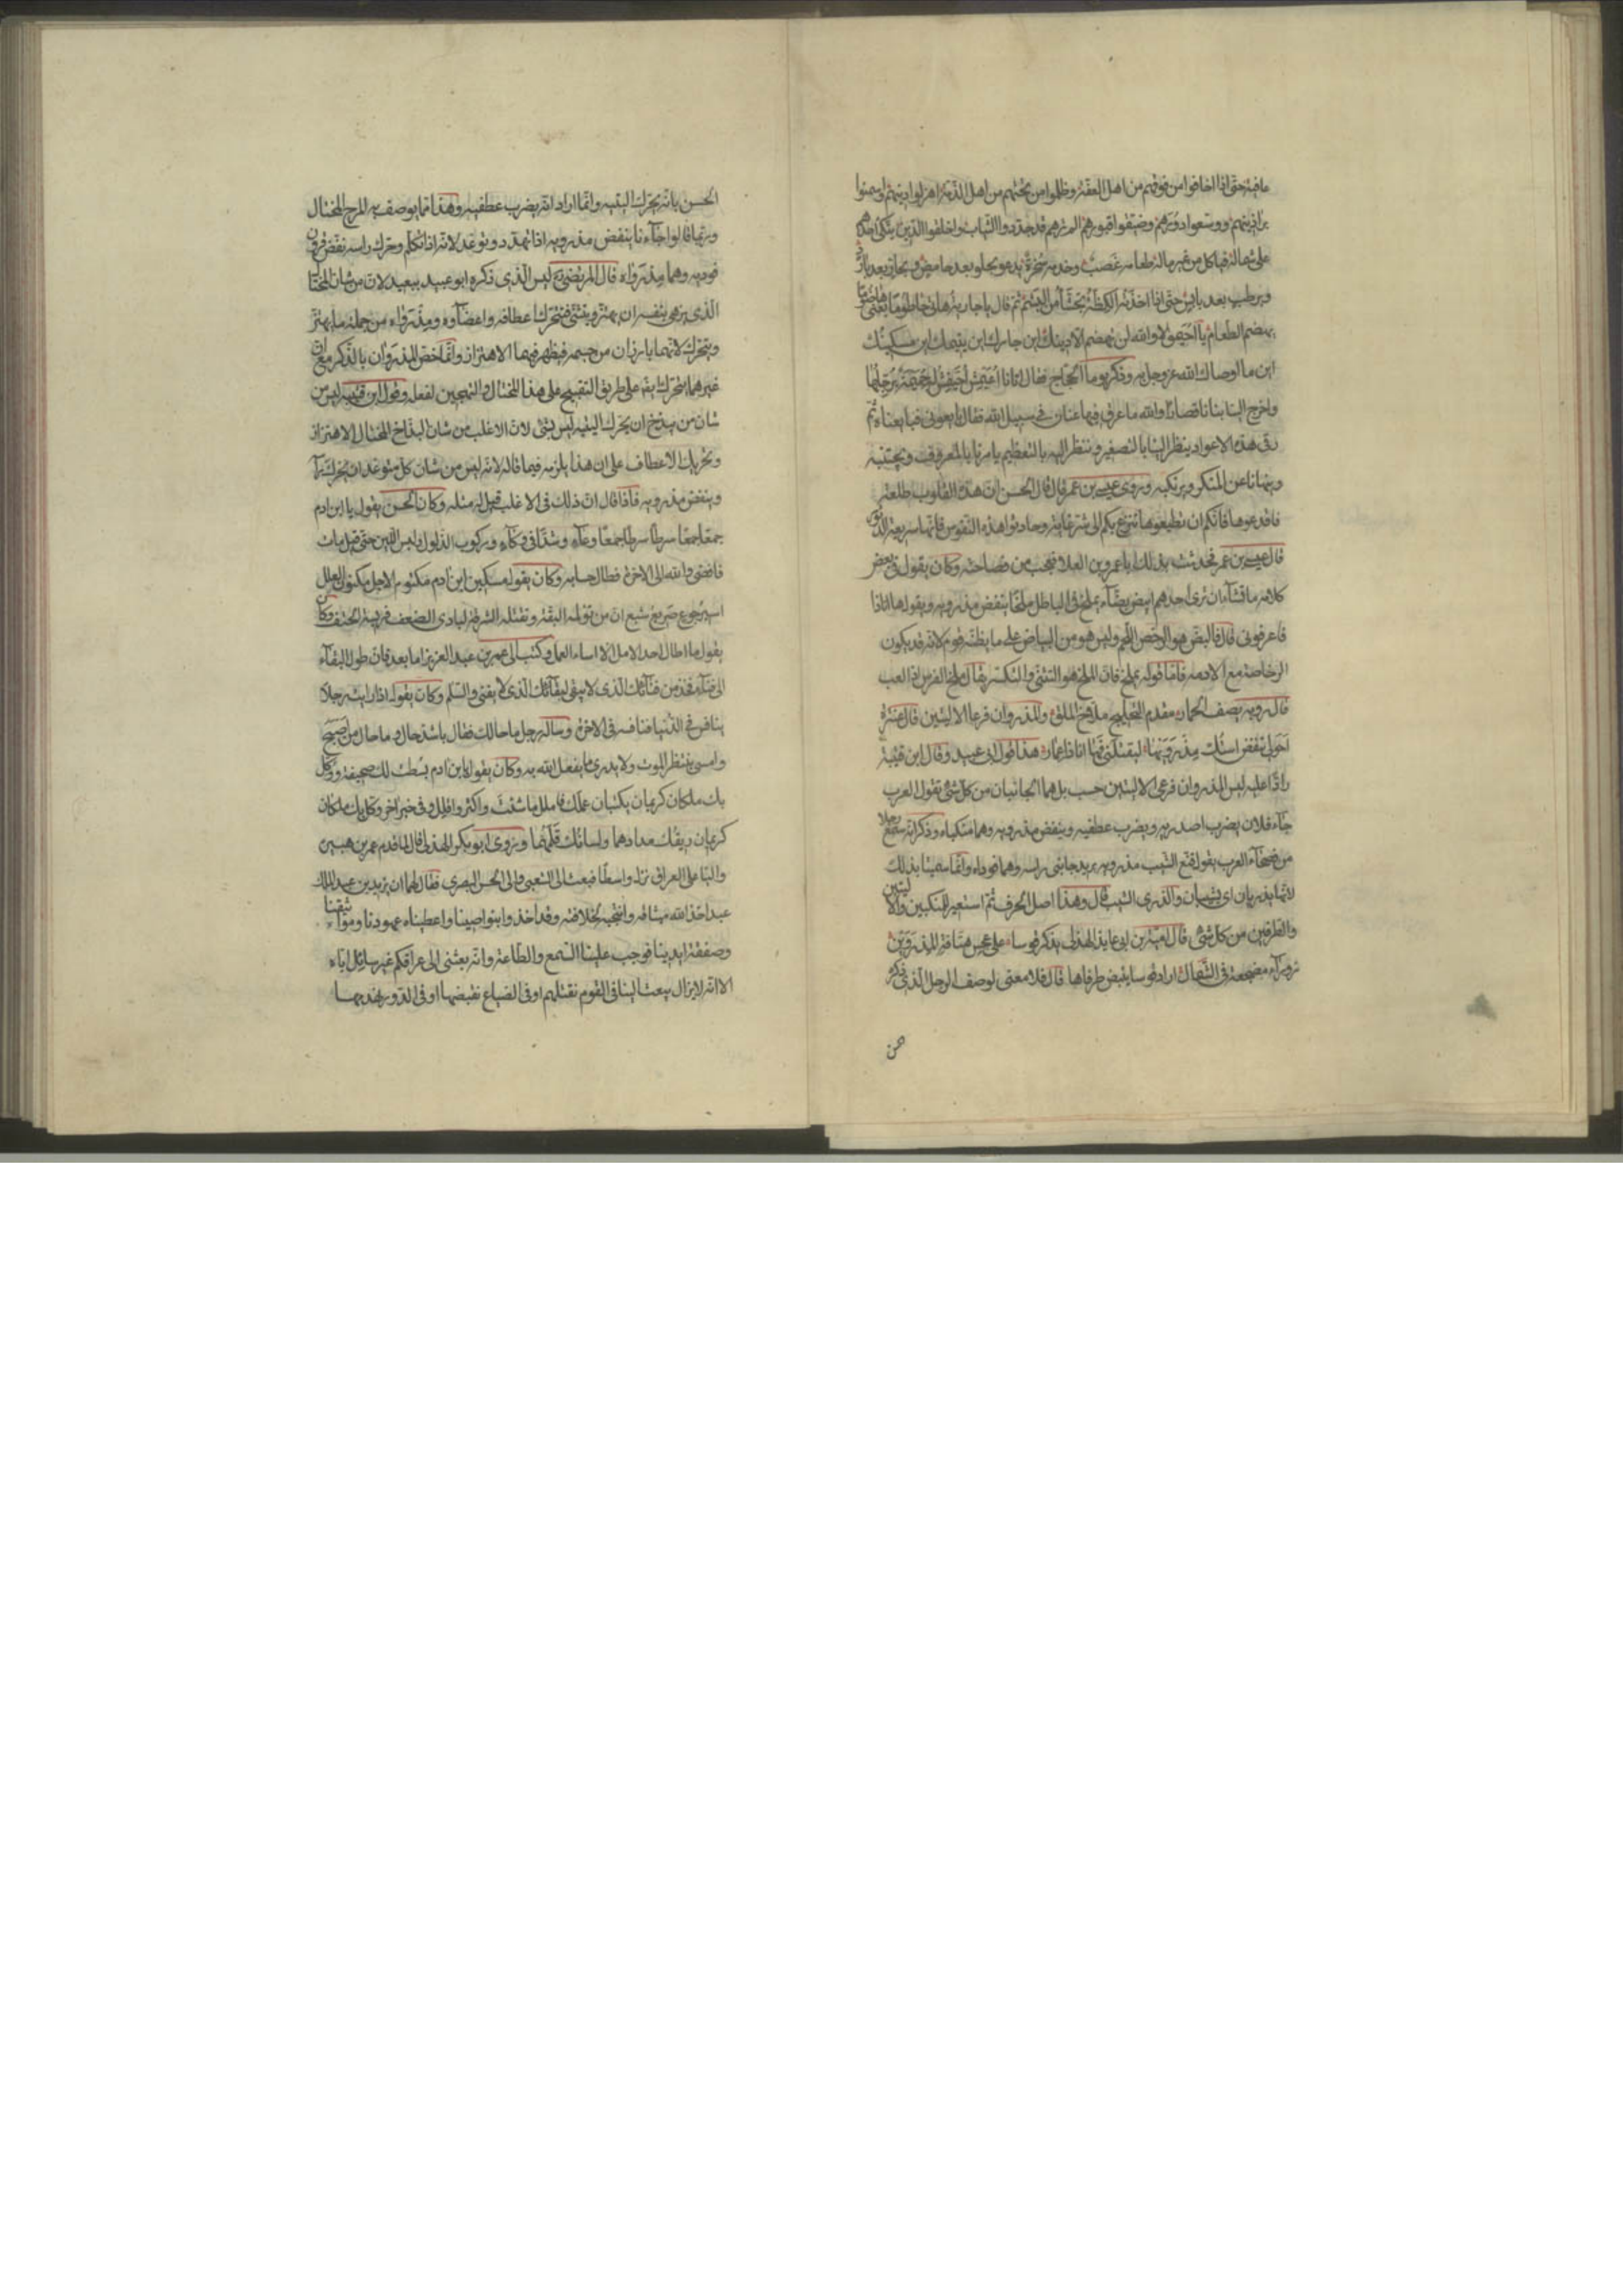 عافية حتى اذا اخافوا من فوقهم من اهل العفة وظلموا من تحتهم من اهل الذمة اهزلوا دينهم واسمنوا
براذينهم ووسعوا دورهم وضيقوا قبورهم المترهم قد جددوا الثياب واخلقوا الدين يتكئ احدهم
على شماله فياكل من غير ماله طعامه غصب وخدمه سخرة يدعو بحلو بعد حامض وبحار بعد بارد
وبرطب بعد يابس حتى اذا اخذته الكظة تجشأ من البشم ثم قال يا جارية هاتى حاطوما يعنى هاضوما
يهضم الطعام يا احيمق لا والله لن تهضم الا دينك اين جارك اين يتيمك اين مسكينك
اين ما اوصاك الله عز وجل به وذكر يوما الحجاج فقال اتانا اعيمش اخيفش له جميمة يرجلها
واخرج الينا بنانا قصارا والله ما عرق فيها عنان فى سبيل الله فقال بايعونى فبايعناه ثم
رقى هذه الاعواد ينظر الينا بالتصغير وننظر اليه بالتعظيم يامرنا بالمعروف ويجتنبه
وينهانا عن المنكر ويرتكبه وروى عيسى بن عمر قال قال الحسن ان هذه القلوب طلعة
فاقدعوها فانكم ان تطيعوها تنزع بكم الى شر غاية وحادثوا هذه النفوس فانها سريعة الدثور
قال عيسى بن عمر فحدثت بذلك ابا عمرو بن العلا فتعجب من فصاحته وكان يقول فى بعض
كلامه ما تشاء ان ترى احدهم ابيض بضا يملخ فى الباطل ملخا ينفض مذرويه ويقول ها انا ذا
فاعرفونى قال فالبض هو الرخص اللحم وليس هو من البياض على ما يظنه قوم لانه قد يكون
الرخاصة مع الادمه فاما قوله يملخ فان الملخ هو التثنى والتكسر يقال ملخ الفرس اذا لعب
قال رؤبه يصف الحمار مقتدر التجليح ملاخ الملق والمذروان فرعا الاليتين قال عنترة
احولى تنفض استك مذرويها لتقتلنى فها انا ذا عمارا هذا قول ابى عبيد وقال ابن قتيبة
رادا عليه ليس المذروان فرعى الاليتين حسب بل هما الجانبان من كل شئ تقول العرب
جاء فلان يضرب اصدريه ويضرب عطفيه وينفض مذرويه وهما منكباه وذكر انه سمع رجلا
من فصحاء العرب يقول قنع الشيب مذرويه يريد جانبى راسه وهما فوداه وانما سميا بذلك
لانهما يذريان اى يشيبان والذرى الشيب قال وهذا اصل الحرف ثم استعير للمنكبين والاليتين
والطرفين من كل شئ قال امية بن ابى عايذ الهذلى يذكر قوسا على عجس هتافة المذروين
زوراء مضجعة فى الشمال اراد قوسا ينبض طرفاها قال فلا معنى لوصف الرجل الذى ذكره
الحسن بانه يحرك اليتيه وانما اراد انه يضرب عطفيه وهذا مما يوصف به المرح المختال
وربما قالوا جاءنا ينفض مذرويه اذا تهدد وتوعد لانه اذا تكلم وحرك راسه نفض قرون
فوديه وهما مذرواه قال المرتضى ليس الذى ذكره ابو عبيد ببعيد لان من شان المختال
الذى يزهى بنفسه ان يهتز ويتثنى فتتحرك اعطافه واعضاؤه ومذرواه من جملة ما يهتز
ويتحرك لانهما بارزان من جسمه فيظهر فيهما الاهتزاز وانما خص المذروان بالذكر مع ان
غيرهما يتحرك ايضا على طريق التقبيح على هذا المختال والتهجين لفعله وقول ابن قتيبه ليس من
شان من يبذخ ان يحرك اليتيه ليس بشئ لان الاغلب من شان البذاخ المختال الاهتزاز
وتحريك الاعطاف على ان هذا يلزمه فيما قاله لانه ليس من شان كل متوعد ان يحرك راسه
وينفض مذرويه فاذا قال ان ذلك فى الاغلب قيل له مثله وكان الحسن يقول يا ابن ادم
جمعا جمعا سرطا سرطا جمعا فى وعاء وشدا فى وكاء وركوب الذلول ولبس اللين حتى قيل مات
فافضى والله الى الاخرة فطال حسابه وكان يقول مسكين ابن ادم مكتوم الاجل مكنون العلل
اسير جوع صريع شبع ان من تولمه البقة وتقتله الشرقة لبادى الضعف فريسة الحتف وكان
يقول ما اطال احد الامل الا اساء العمل وكتب الى عمر بن عبد العزيز اما بعد فان طول البقاء
الى فناء فخذ من فنائك الذى لا يبقى لبقائك الذى لا يفنى والسلم وكان يقول اذا رايت رجلا
ينافس فى الدنيا فنافسه فى الاخرة وساله رجل ما حالك فقال باشد حال وما حال من اصبح
وامسى ينتظر الموت ولا يدرى ما يفعل الله به وكان يقول يا ابن ادم بسطت لك صحيفة ووكل
بك ملكان كريمان يكتبان عملك فاملل ما شئت واكثر او اقلل وفى خبر اخر وكل بك ملكان
كريمان ريقك مدادهما ولسانك قلمهما وروى ابو بكر الهذلى قال لما قدم عمر بن هبيرة
واليا على العراق نزل واسطا فبعث الى الشعبى والى الحسن البصرى فقال لهما ان يزيد بن عبد الملك
عبد اخذ الله ميثاقه وانتجبه لخلافته وقد اخذ بنواصينا واعطيناه عهودنا ومواثيقنا
وصفقة ايدينا فوجب علينا السمع والطاعة وانه بعثنى الى عراقكم غير سائل اياه
الا انه لا يزال يبعث الينا فى القوم نقتلهم او فى الضياع نقبضها او فى الدور نهدمها